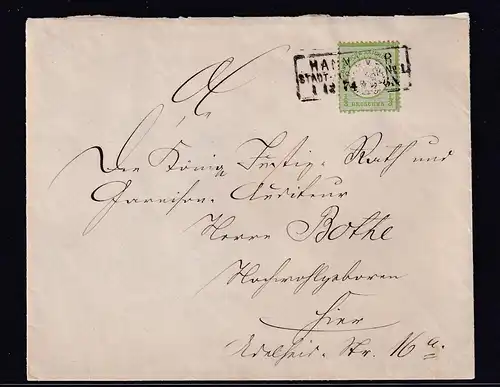 HANNOVER
STADT- No 1
1 12 74 N
GROSCHEN
Den König Justiz-Rath und
Garnison-Auditeur
Herrn Bothe
Hochwohlgeboren
hier
Adelheid-Str. 16 a.